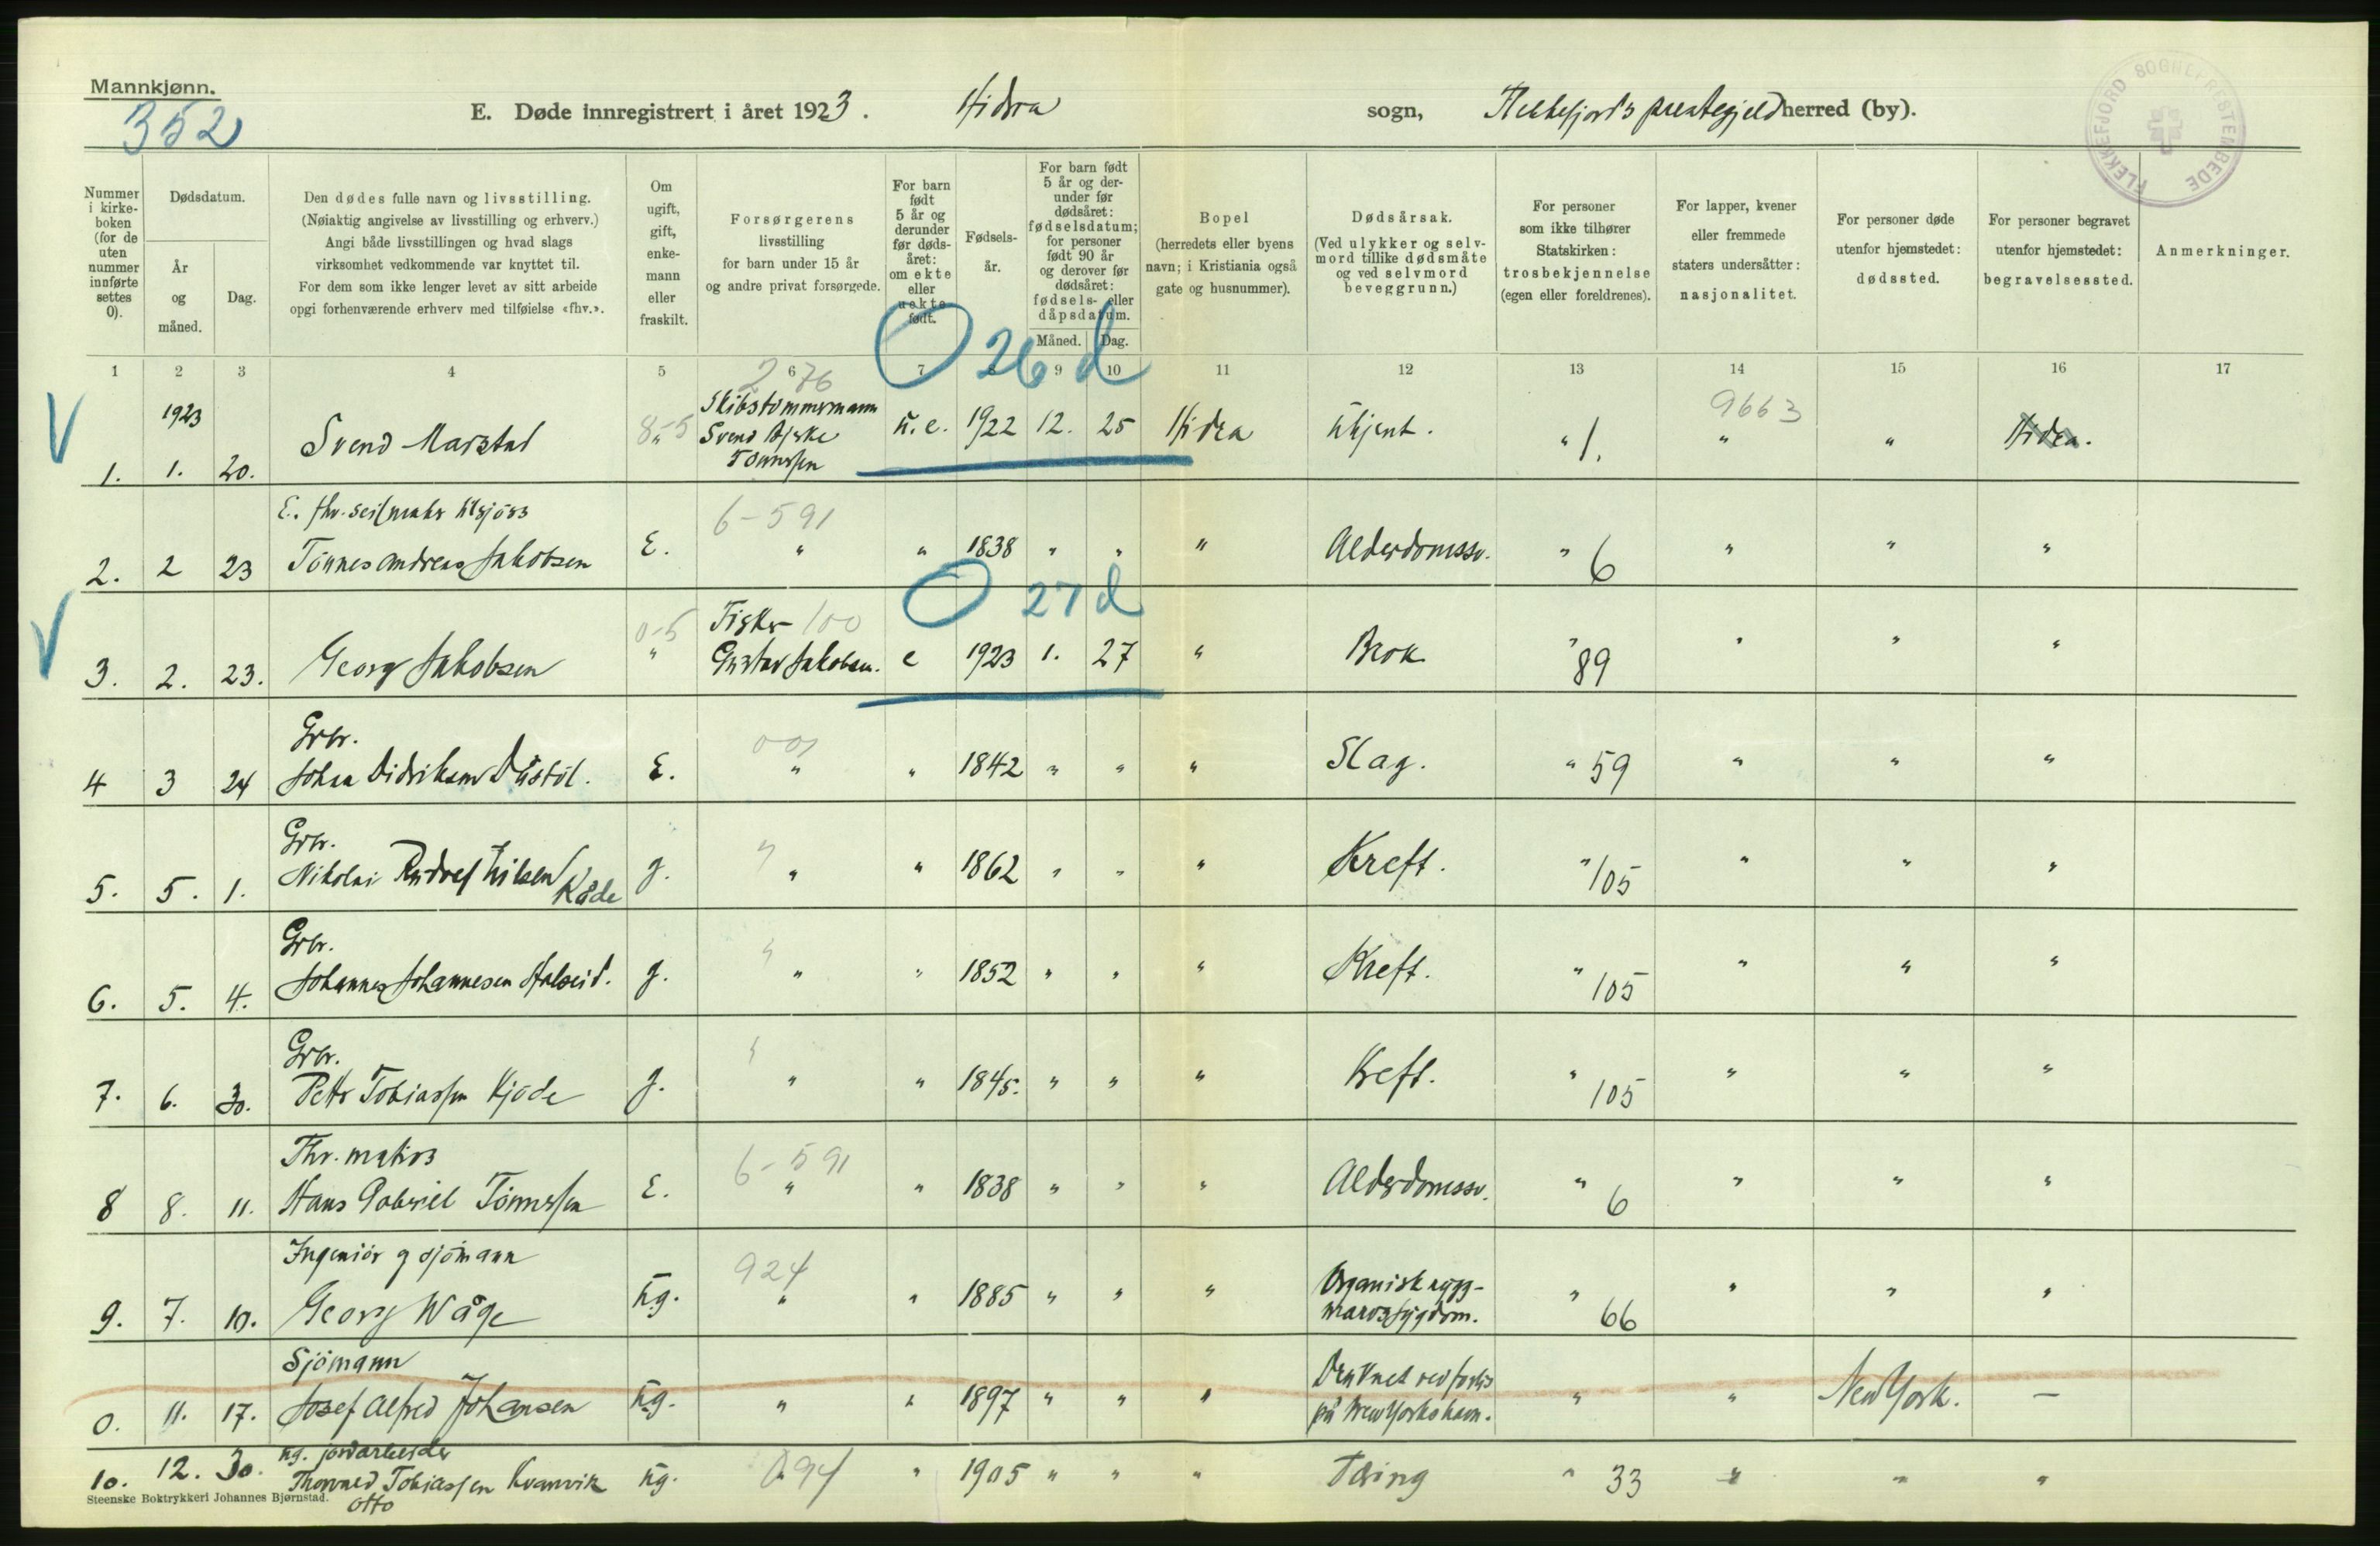 Mannkjønn.
352
E. Døde innregistrert i året 1923. Hidra sogn, Flekkefjords prestegjeld herred (by).
FLEKKEFJORD SOGNEPRESTEMBEDE
Nummer i kirke-boken (for de uten nummer innførte settes 0).
Dødsdatum.
År og måned.
Dag.
Den dødes fulle navn og livsstilling.
(Nøiaktig angivelse av livsstilling og erhverv.)
Angi både livsstillingen og hvad slags
virksomhet vedkommende var knyttet til.
For dem som ikke lenger levet av sitt arbeide
opgi forhenværende erhverv med tilføielse «fhv.».
Om ugift, gift, enke-mann eller fraskilt.
Forsørgerens
livsstilling
for barn under 15 år
og andre privat forsørgede.
For barn født 5 år og derunder før døds-året: om ekte eller uekte født.
Fødsels-år.
For barn født 5 år og der-under før dødsåret: fødselsdatum; for personer født 90 år og derover før dødsåret: fødsels- eller dåpsdatum.
Måned.
Dag.
Bopel
(herredets eller byens
navn; i Kristiania også
gate og husnummer).
Dødsårsak.
(Ved ulykker og selv-
mord tillike dødsmåte
og ved selvmord
beveggrunn.)
For personer
som ikke tilhører
Statskirken:
trosbekjennelse
(egen eller foreldrenes).
For lapper, kvener
eller fremmede
staters undersåtter:
nasjonalitet.
For personer døde
utenfor hjemstedet:
dødssted.
For personer begravet
utenfor hjemstedet:
begravelsessted.
Anmerkninger.
1 2 3 4 5 6 7 8 9 10 11 12 13 14 15 16 17
276 O 26 d
V 1923 Skibstømmermann 9663
1. 1. 20. Svend Marstal 8-5 " Svend Bjerke Tønnessen u.e. 1922 12. 25 Hidra Ukjent. " 1. " " Hidra.
E. fhv. seilmaker & sjøm
2. 2 23 Tønnes Andreas Jakobsen E. 6-591 " " 1838 " " " Alderdomssv. " 6 " " "
O 27 d
V Fisker 100
3. 2. 23. Georg Jakobsen 0-5 " Gustav Jakobsen. e 1923 1. 27 " Brok " 89 " " "
Grbr. 001
4 3 24 Johan Didriksen Dåstøl. E. " " 1842 " " " Slag. " 59 " " "
Grbr.
5. 5. 1. Nikolai Rudolf Eilsen Kåde g. " " " 1862 " " " Kreft. " 105 " " "
Grbr.
6. 5. 4. Johannes Johannesen Høleseid. g. " " " 1852 " " " Kreft. " 105 " " "
Grbr.
7. 6. 30. Peter Tobiassen Kjøde g. " " " 1845. " " " Kreft. " 105 " " "
Fhv. matros 6-591
8 8. 11. Hans Gabriel Tønnessen E. " " 1838 " " " Alderdomssv. " 6 " " "
Ingeniør g sjømann 924
9. 7. 10. Georg Wåge ug. " " 1885 " " " Organisk rygg-margssygdom. " 66 " " "
Sjømann
0. 11. 17. Josef Alfred Johansen ug. " " 1897 " " " Druknet ved forlis på New Yorks havn. " " New York. —
ug. jordarbeider
10. 12. 30. Thorvald Tobiassen Kvanvik ug. 094 " 1905 " " " Tæring " 33 " " "
Otto
Steenske Boktrykkeri Johannes Bjørnstad.